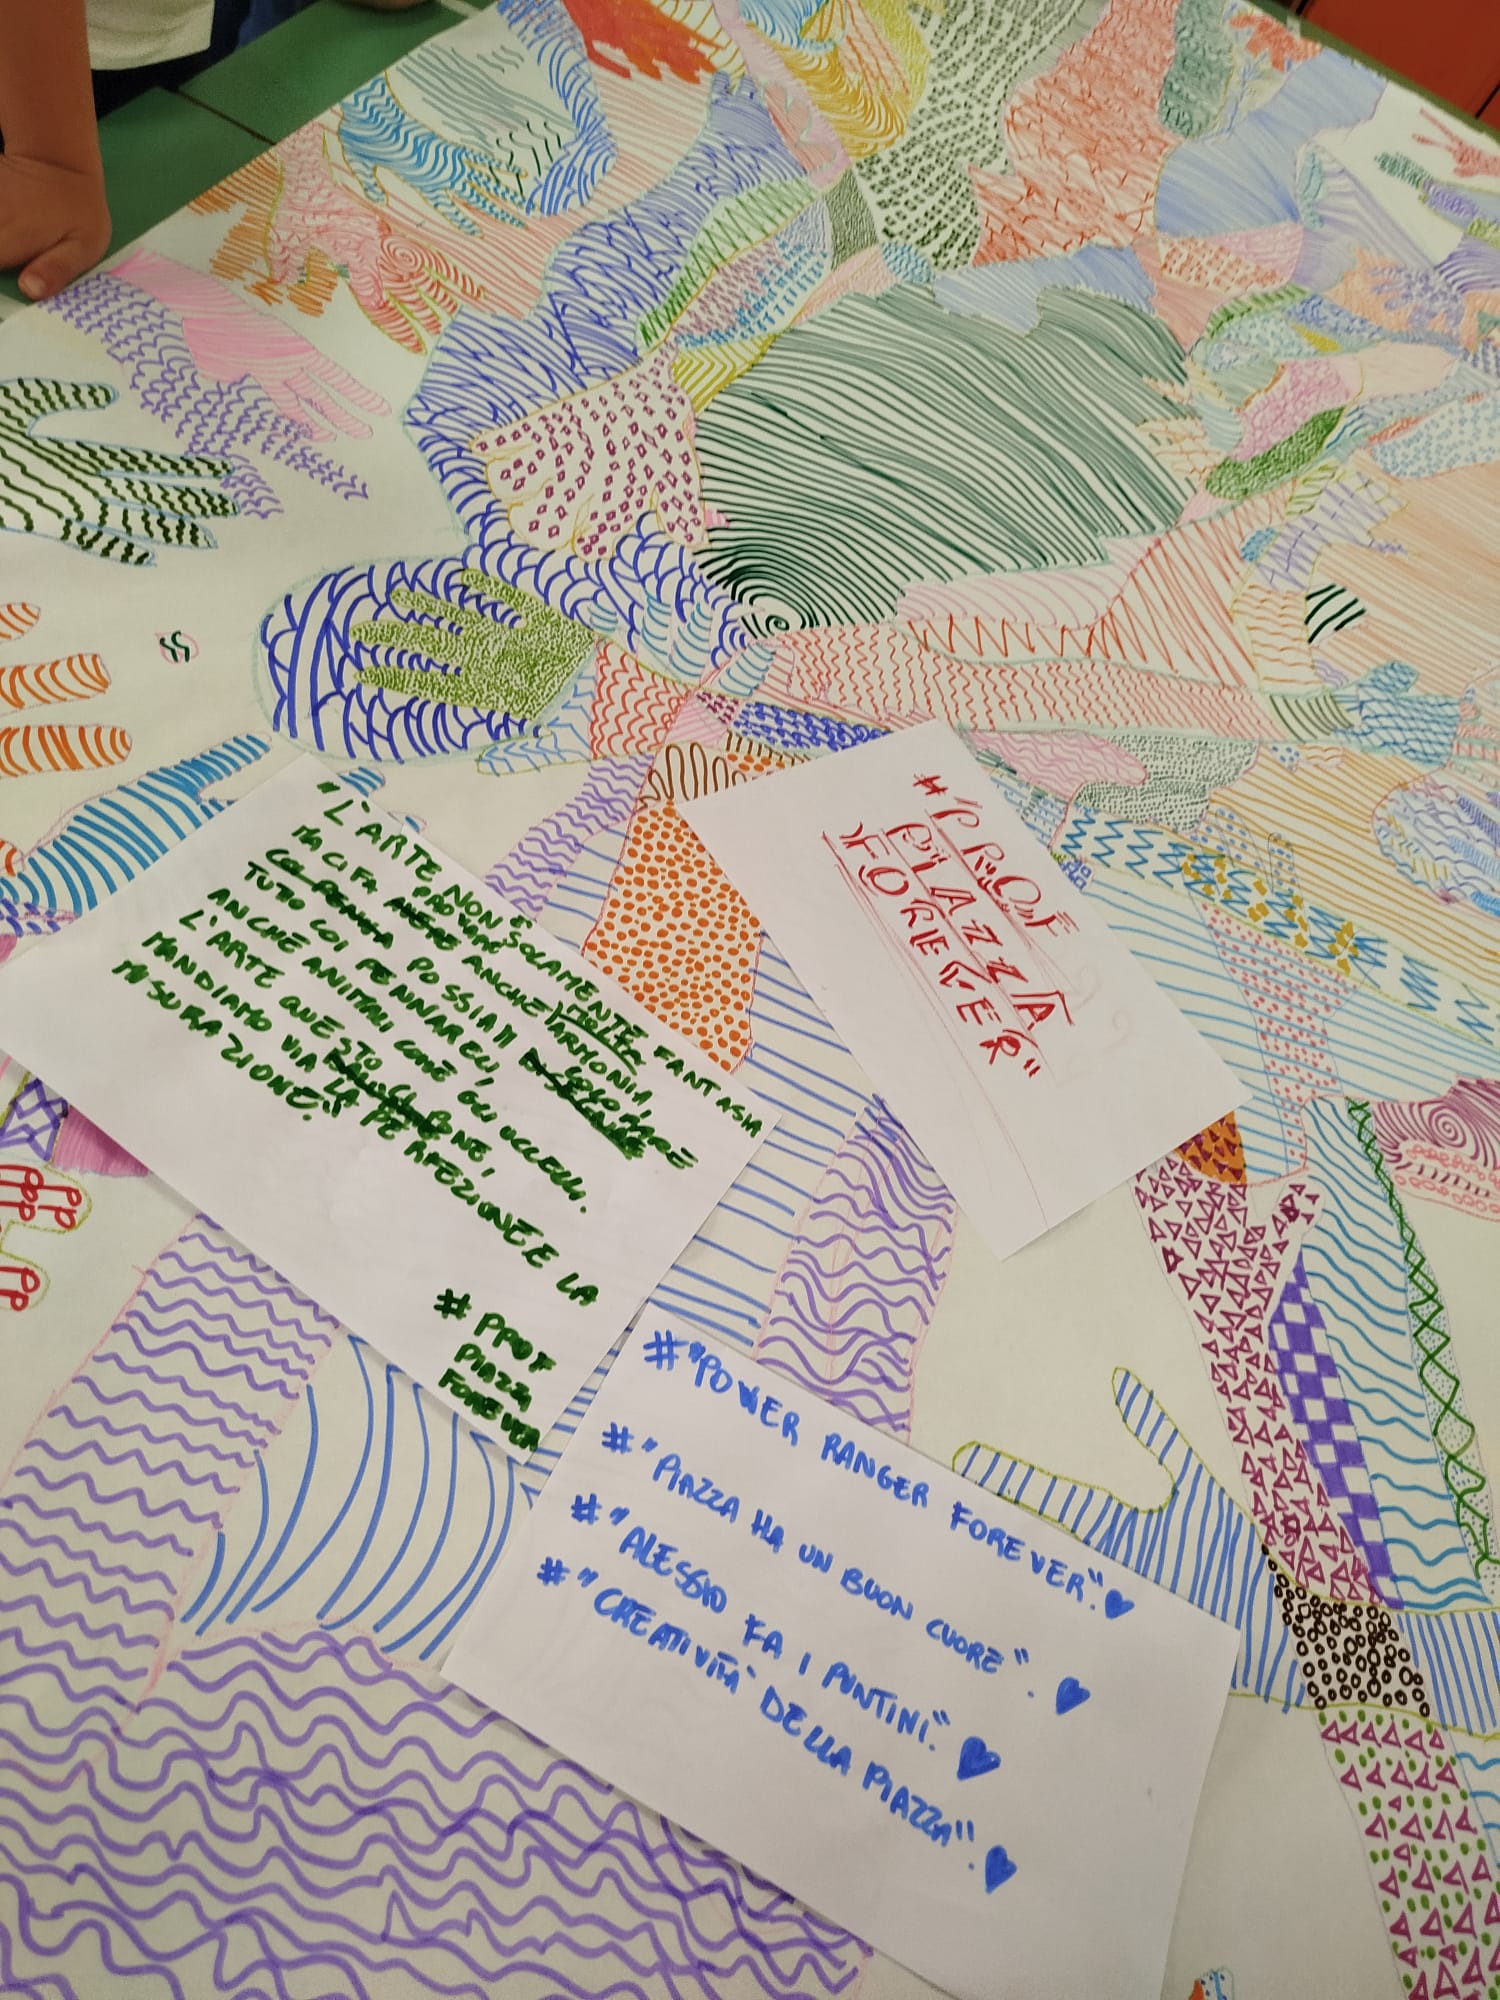 "L'ARTE NON È SOLAMENTE FANTASIA
MA CI FA PROVARE ANCHE MOLTA ARMONIA,
POSSIAM COLORARE
TUTTO COI PENNARELLI,
ANCHE ANIMALI COME GLI UCCELLI.
L'ARTE QUESTO CI PONE,
MANDIAMO VIA LA PERFEZIONE E LA
MISURAZIONE."
# PROF
PIAZZA
FOREVER
#"PROF
PIAZZA
FOREVER"
#"POWER RANGER FOREVER". ♥
#"PIAZZA HA UN BUON CUORE". ♥
#"ALESSIO FA I PUNTINI". ♥
#"CREATIVITÀ DELLA PIAZZA". ♥